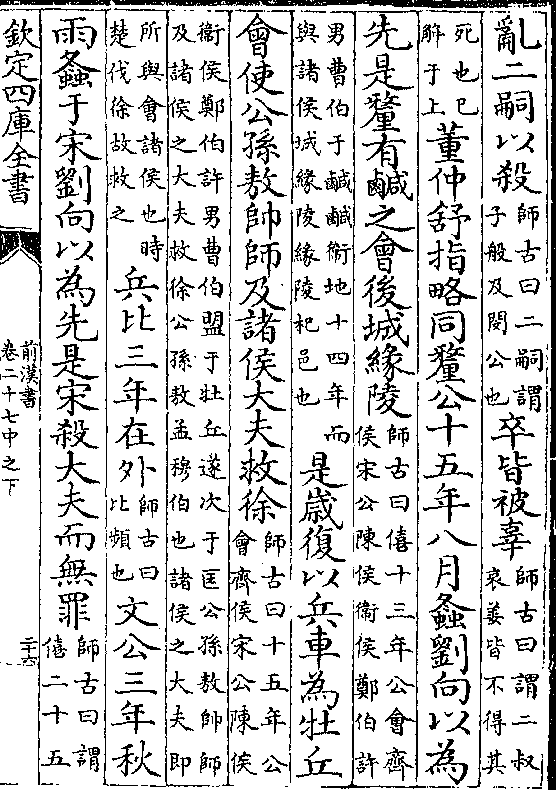 亂二嗣以殺師古曰二嗣謂子般及閔公也卒皆被辜師古曰謂二叔哀姜皆不得其
死也已解于上董仲舒指略同釐公十五年八月螽劉向以為
先是釐有鹹之會後城緣陵師古曰僖十三年公會齊侯宋公陳侯衛侯鄭伯許
男曹伯于鹹鹹衛地十四年而與諸侯城緣陵緣陵杞邑也是歲復以兵車為牡丘
會使公孫敖帥師及諸侯大夫救徐師古曰十五年公會齊侯宋公陳侯
衛侯鄭伯許男曹伯盟于牡丘遂次于匡公孫敖帥師及諸侯之大夫救徐公孫敖孟穆伯也諸侯之大夫即
所與會諸侯也時楚伐徐故救之兵比三年在外師古曰比頻也文公三年秋
雨螽于宋劉向以為先是宋殺大夫而無罪師古曰謂僖二十五
欽定四庫全書
前漢書
卷二十七中之下
二十六